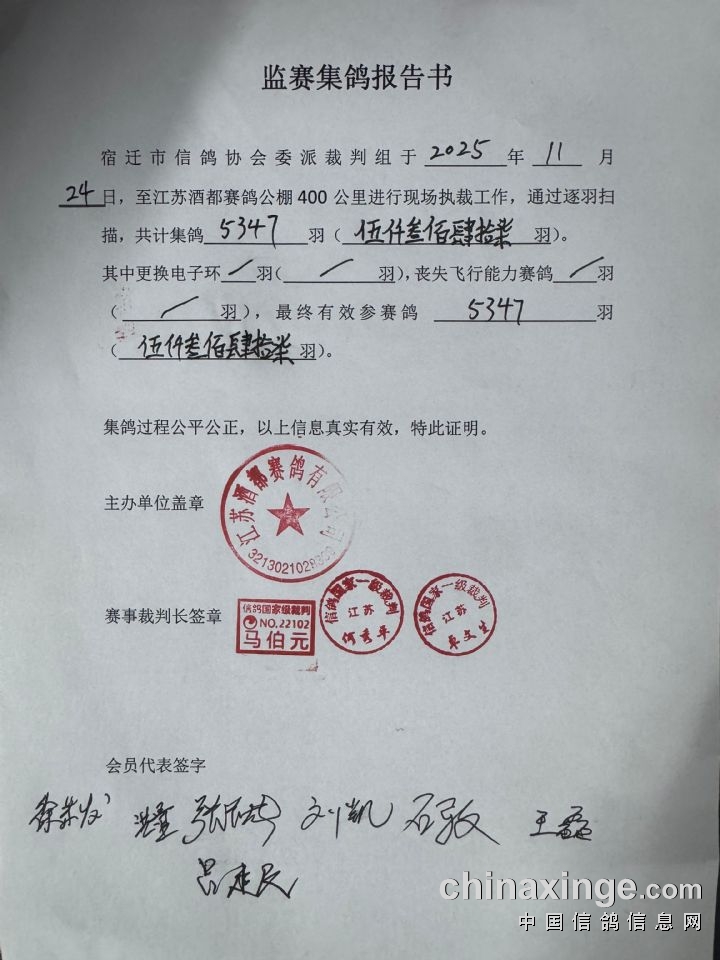 监赛集鸽报告书
宿迁市信鸽协会委派裁判组于 2025 年 11 月
24日，至江苏酒都赛鸽公棚400公里进行现场执裁工作，通过逐羽扫
描，共计集鸽 5347 羽（ 伍仟叁佰肆拾柒 羽）。
其中更换电子环 / 羽（ / 羽），丧失飞行能力赛鸽 / 羽
（ / 羽），最终有效参赛鸽 5347 羽
（ 伍仟叁佰肆拾柒 羽）。
集鸽过程公平公正，以上信息真实有效，特此证明。
主办单位盖章
江苏酒都赛鸽有限公司
赛事裁判长签章
信鸽国家级裁判
NO.22102
马伯元
信鸽国家一级裁判
江苏
信鸽国家一级裁判
江苏
会员代表签字
刘凯 石敬 王
chinaxinge.com
中国信鸽信息网